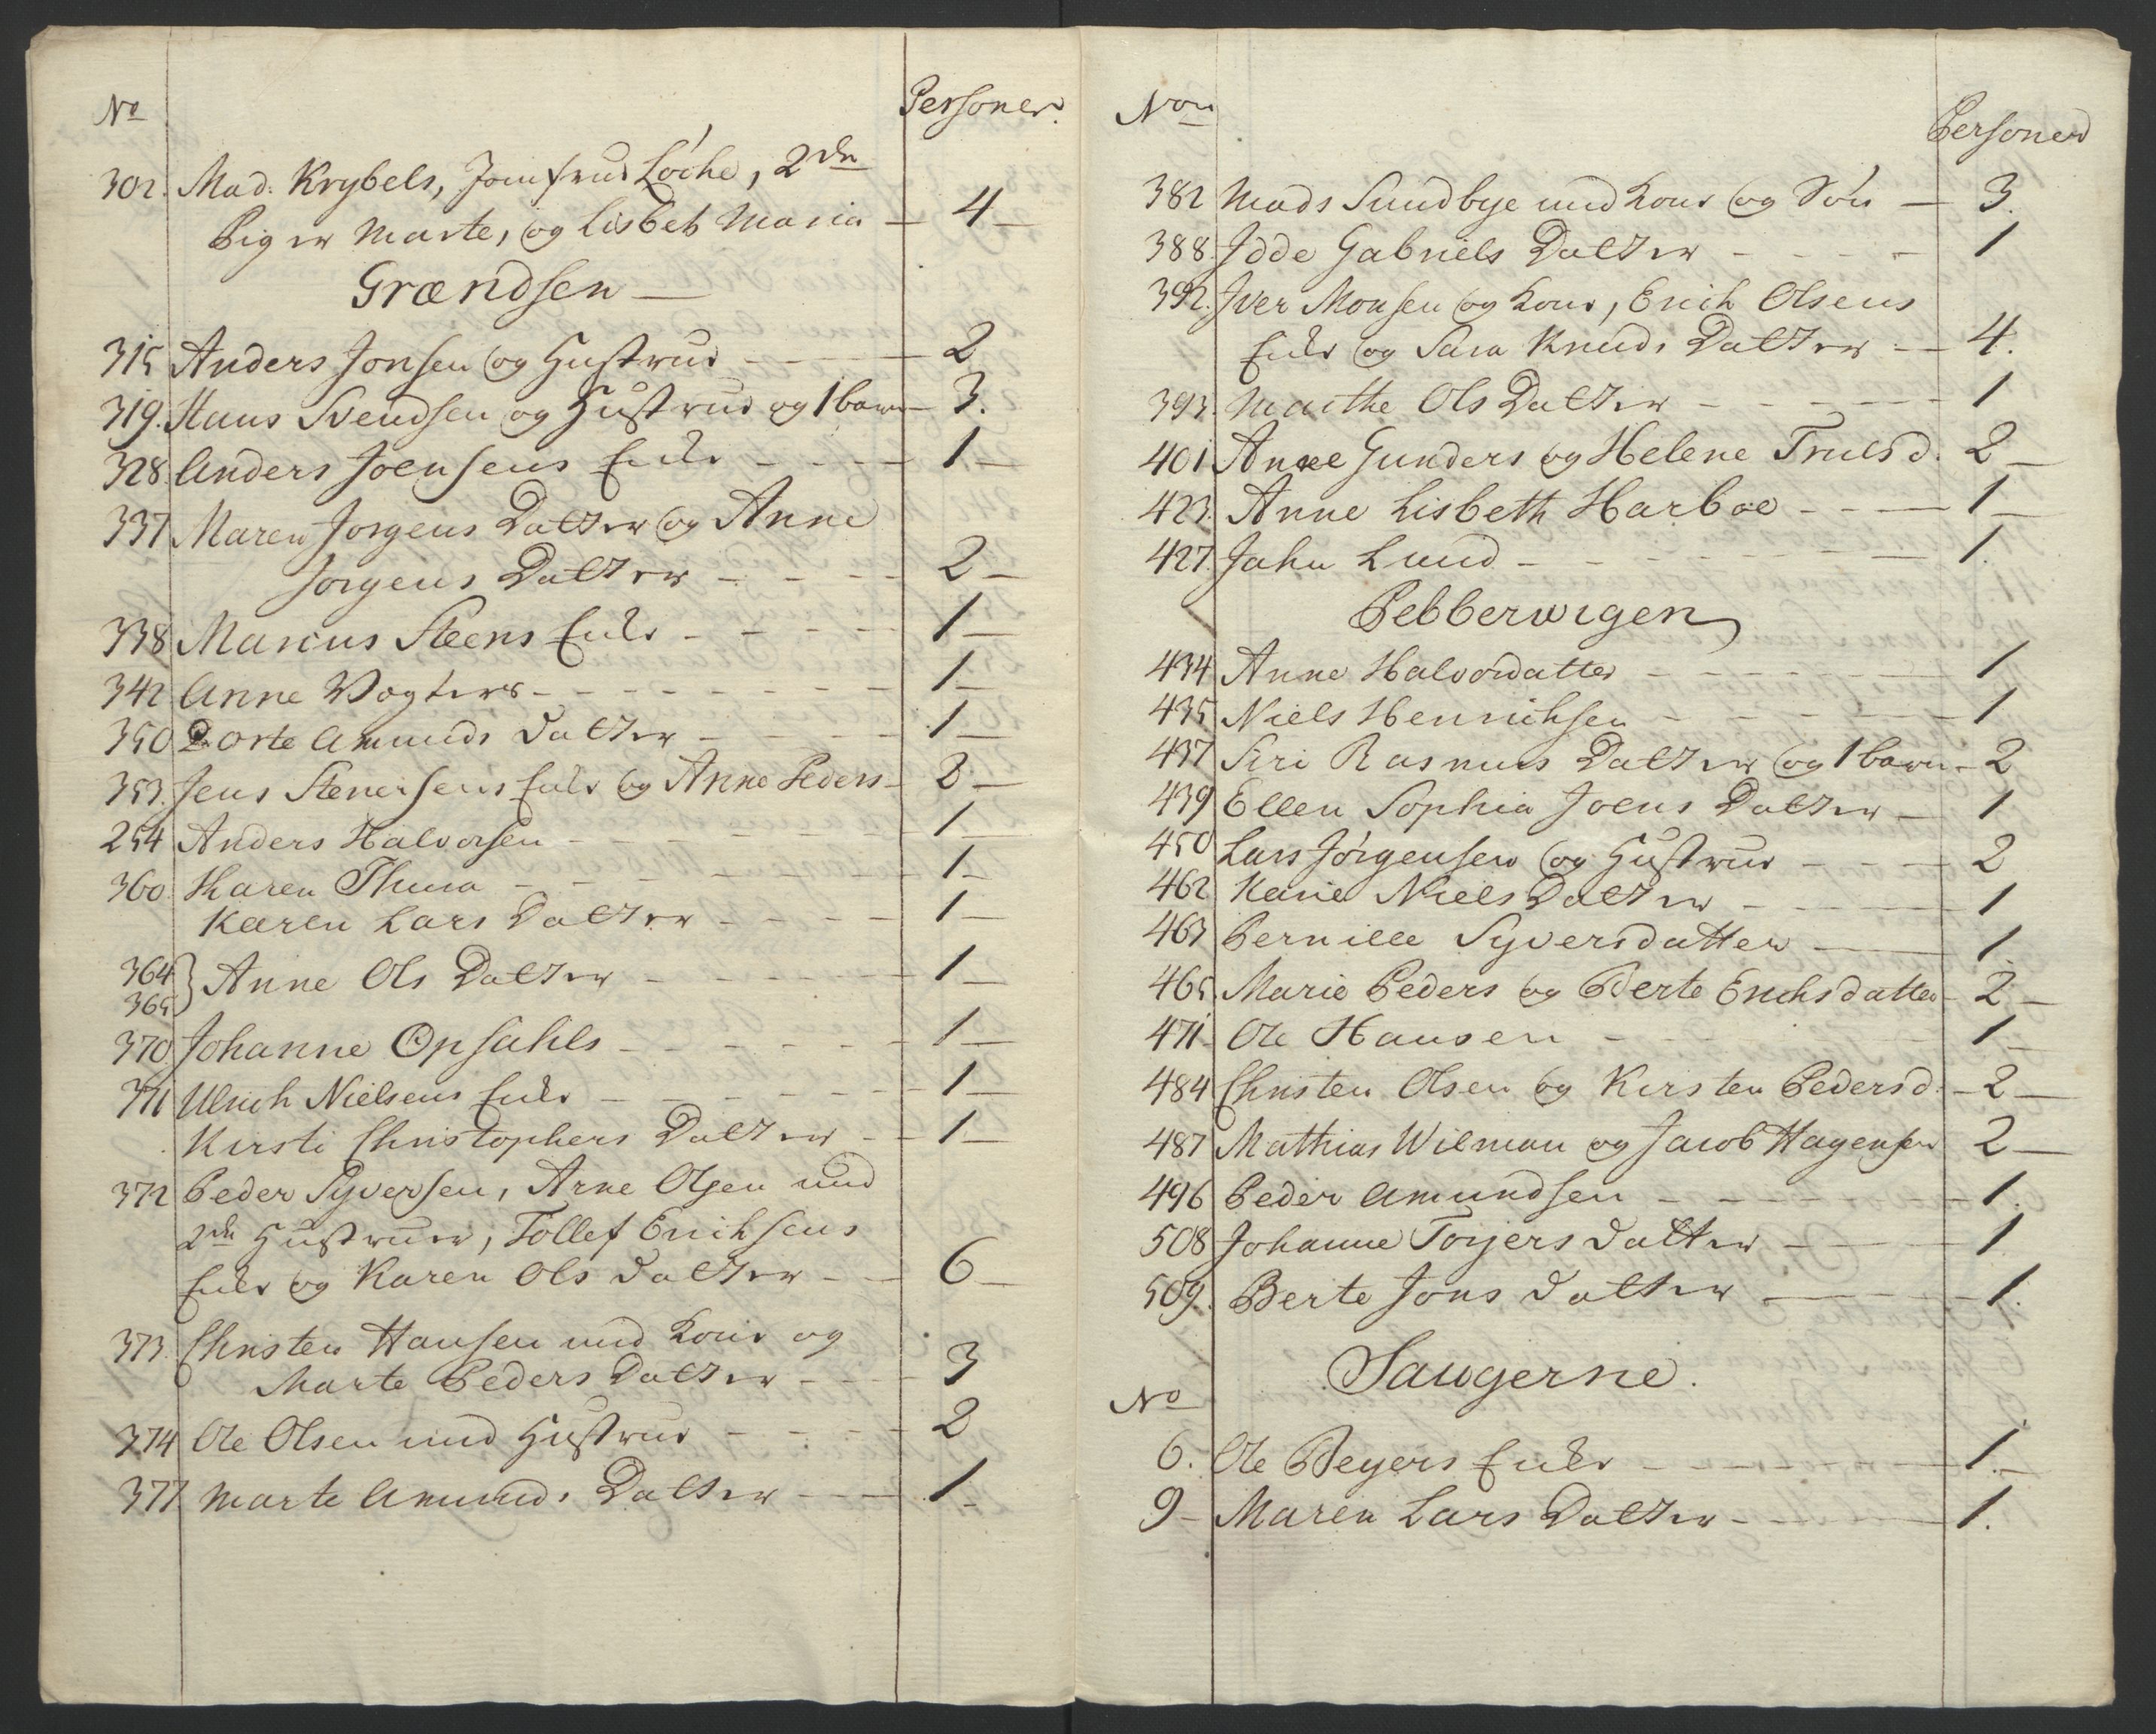 No Personer.
302. Mad: Krybels, Jomfrue Löche, 2de
Piger Marte, og Lisbet Maria — 4 —
Grændsen —
315 Anders Jonsen og Hustrue - - - - 2
319. Hans Svendsen og Hustrue og 1 barn - 3.
328 Anders Joensens Enke - - - - 1 —
337 Maren Jorgens Datter og Anne
Jorgens Datter - - - - 2 —
338 Marcus Steens Enke - - - - 1 —
342 Anne Vogters - - - - - - - 1 —
350 Dorte Amunds Datter - - - - 1 —
353. Jens Stenersens Enke og Anne Peders - 2 —
254 Anders Halvorsen - - - - - - 1 —
360 Karen Thura - - - - - - 1 —
Karen Lars Datter - - - - 1 —
364
365 } Anne Ols Datter - - - - - 1 —
370 Johanne Opsahls - - - - - - 1 —
371 Ulrich Nielsens Enke - - - - - 1 —
Kirsti Christophers Datter - - 1 —
372 Peder Syversen, Arne Olsen med
2de Hustruer, Tollef Erichsens
Enke og Karen Ols Datter - - 6 —
373. Christen Hansen med Kone og
Marte Peders Datter - - - 3
374 Ole Olsen med Hustrue - - - - 2
377 Marte Amunds Datter - - - 1 -
Non Personer
382 Mads Sundbye med Kone og Sön — 3.
388. Idde Gabriels Datter - - - - 1
392. Iver Monsen og Kone, Erich Olsens
Enke og Sara Knuds Datter - - 4.
393. Marthe Ols Datter - - - - - 1
401 Anne Gunders og Helene Trulsd. 2 —
423. Anne Lisbeth Harboe - - - 1 —
427. Jahn Lund - - - - - - - 1.
Pebberwigen
434 Anne Halvordatter - - - - - - 1
435 Niels Henrichsen - - - - - - 1
437 Siri Rasmus Datter og 1 barn - 2
439 Ellen Sophia Joens Datter - 1
450 Lars Jörgensen og Hustrue - - - 2
462 Karie Niels Datter - - - - 1
463 Pernille Syversdatter — 1
465. Marie Peders og Berte Erichsdatter - 2 —
471 Ole Hansen - - - - - 1 —
484 Christen Olsen og Kirsten Pedersd. - 2 —
487 Mathias Wilman og Jacob Hagensen 2 —
496 Peder Amundsen - - - - - - 1.
508 Johanne Torjers Datter - - - - 1
509. Berte Jons Datter - - - - 1.
Saugerne.
No
6. Ole Beyers Enke - - - - - - 1. —
9 - Maren Lars Datter - - - - 1.